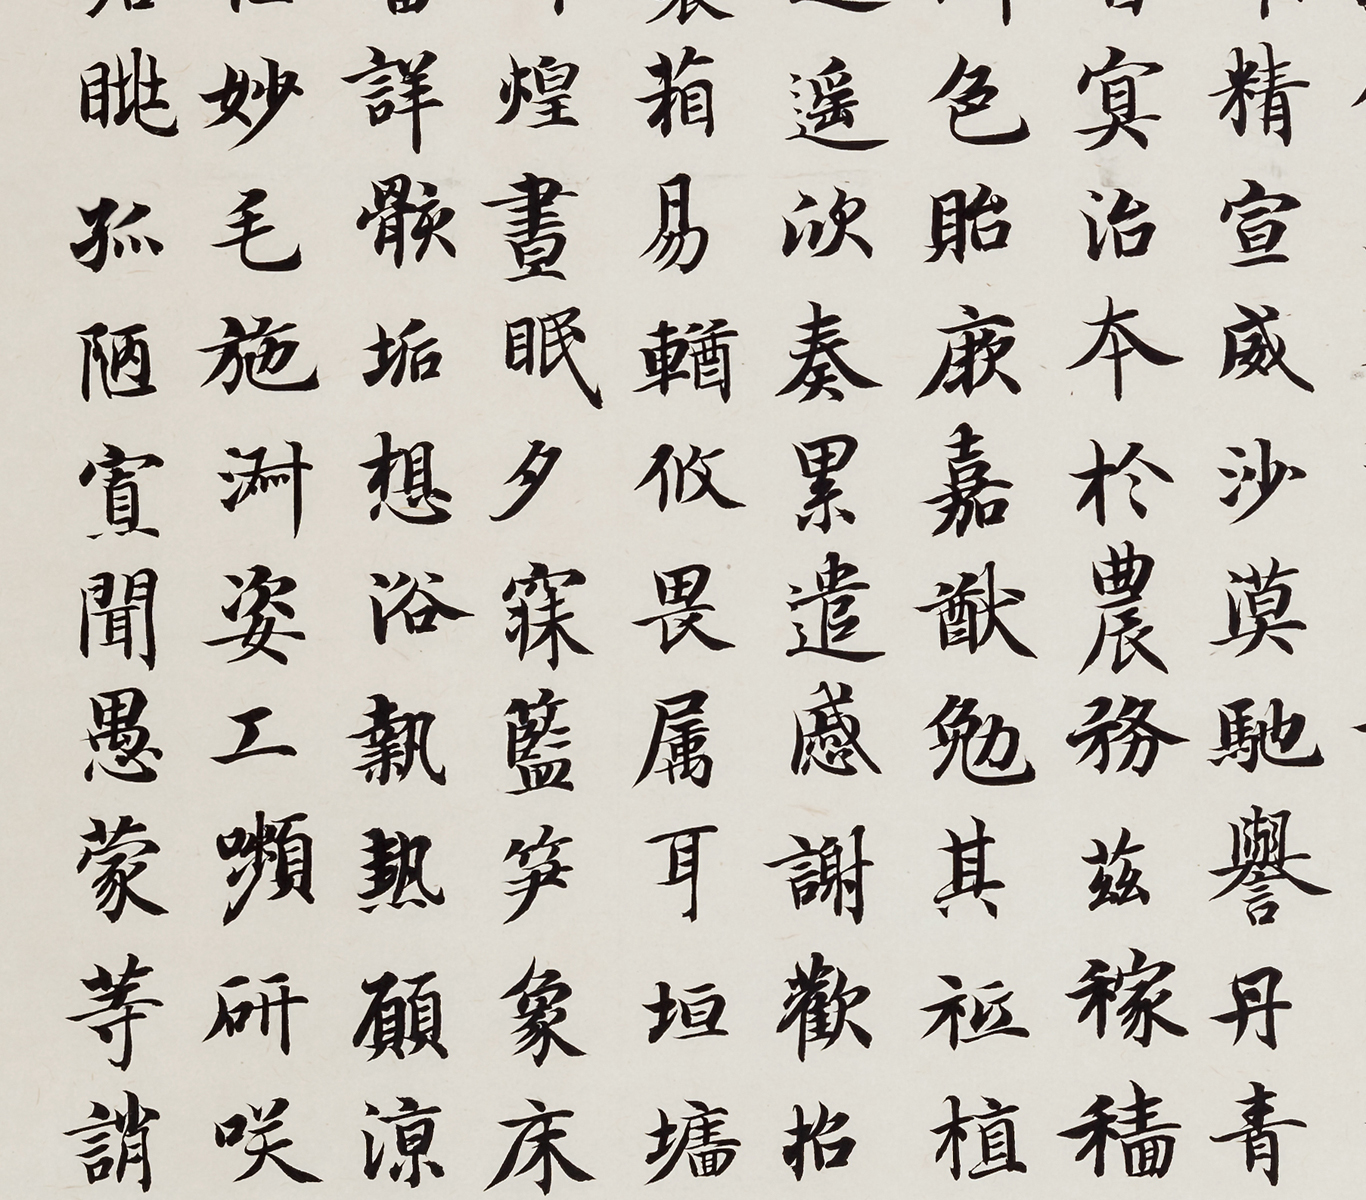 精宣威沙漠馳譽丹青
寞治本於農務茲稼穡
色貽厥嘉猷勉其祗植
遥欣奏累遣慼謝歡招
葙易輶攸畏属耳垣墻
煌晝眠夕寐籃笋象床
詳骸垢想浴執熱願涼
妙毛施淑姿工嚬研咲
眺孤陋寡聞愚蒙等誚